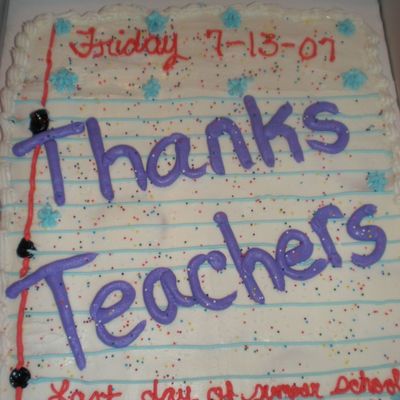 Friday 7-13-07
Thanks
Teachers
Last day of summer school